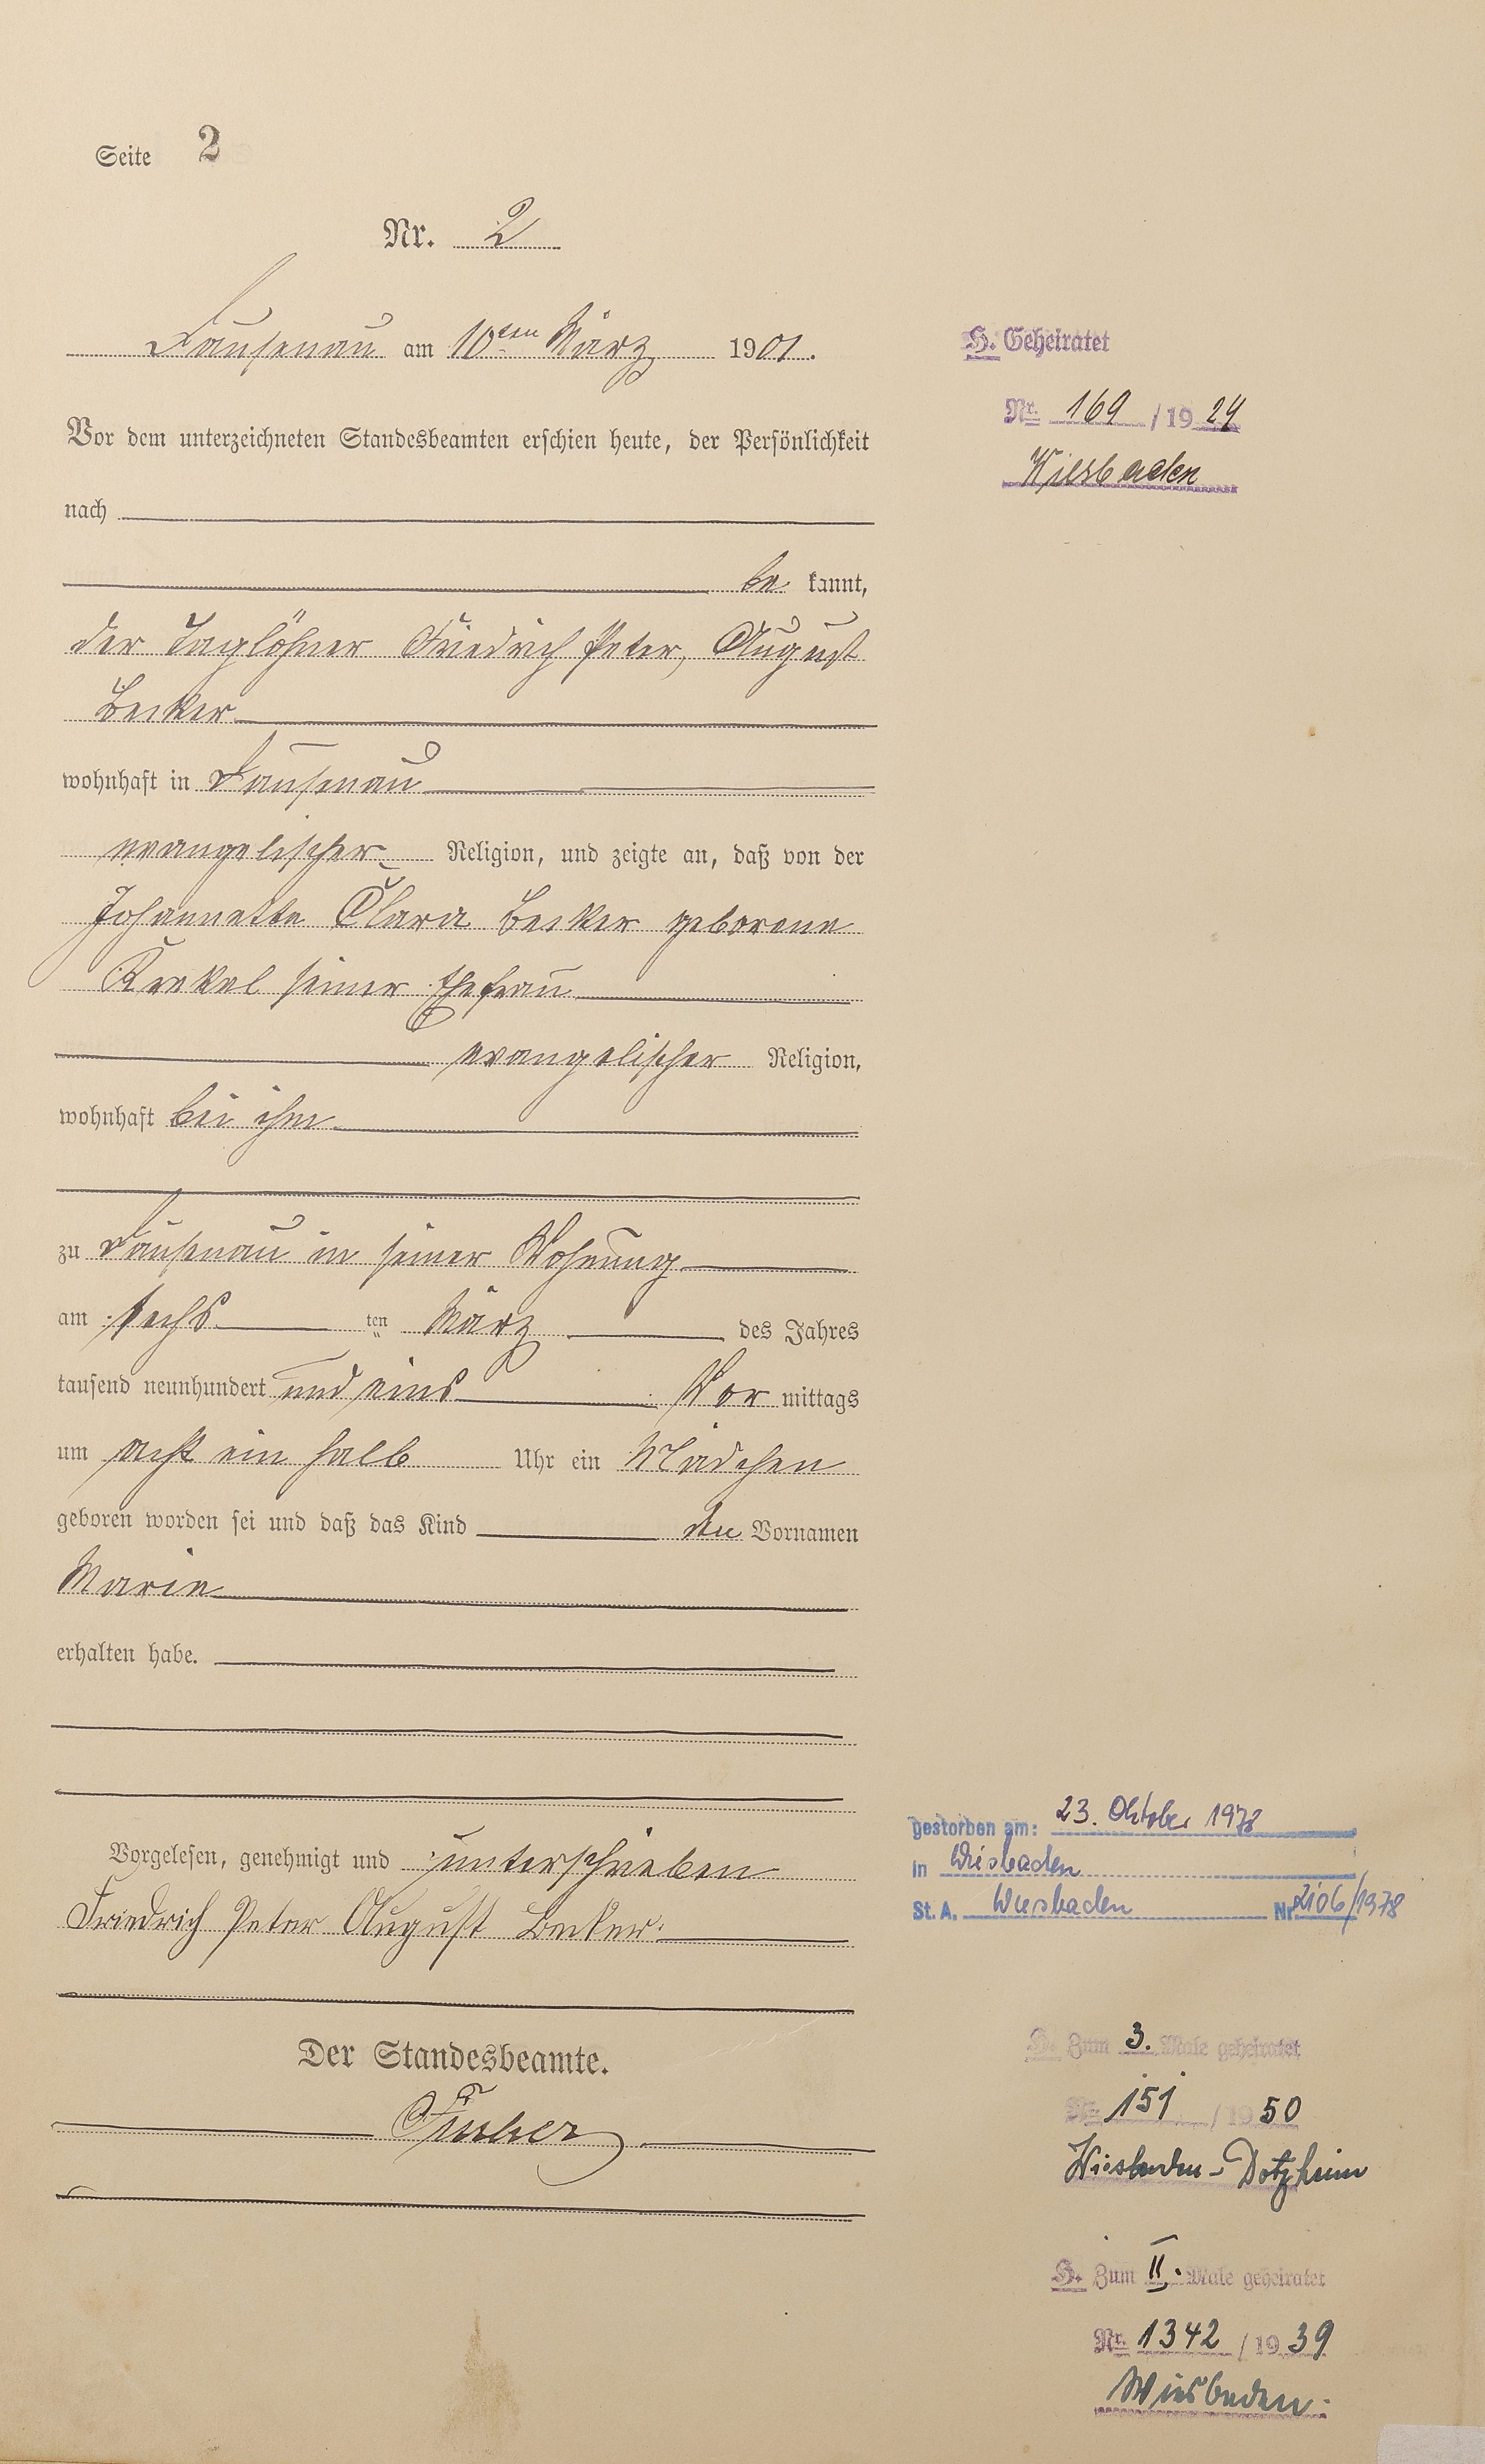 Seite 2
Nr. 2
Dausenau am 10ten März 1901.
Vor dem unterzeichneten Standesbeamten erschien heute, der Persönlichkeit
nach
be kannt,
der Taglöhner Friedrich Peter, August
Becker
wohnhaft in Dausenau
evangelischer Religion, und zeigte an, daß von der
Johannette Clara Becker geborene
Krekel seiner Ehefrau
evangelischer Religion,
wohnhaft bei ihm
zu Dausenau in seiner Wohnung
am sechs ten März des Jahres
tausend neunhundert und eins Vor mittags
um acht ein halb Uhr ein Mädchen
geboren worden sei und daß das Kind den Vornamen
Marie
erhalten habe.
Vorgelesen, genehmigt und unterschrieben
Friedrich Peter August Becker.
Der Standesbeamte.
H. Geheiratet
Nr. 169 / 19 24
Wiesbaden
gestorben am: 23. Oktober 1978
in Wiesbaden
St. A. Wiesbaden Nr 2106/1978
H. Zum 3. Male geheiratet
Nr. 151 / 19 50
Wiesbaden-Dotzheim
H. Zum II. Male geheiratet
Nr. 1342 / 19 39
Wiesbaden.